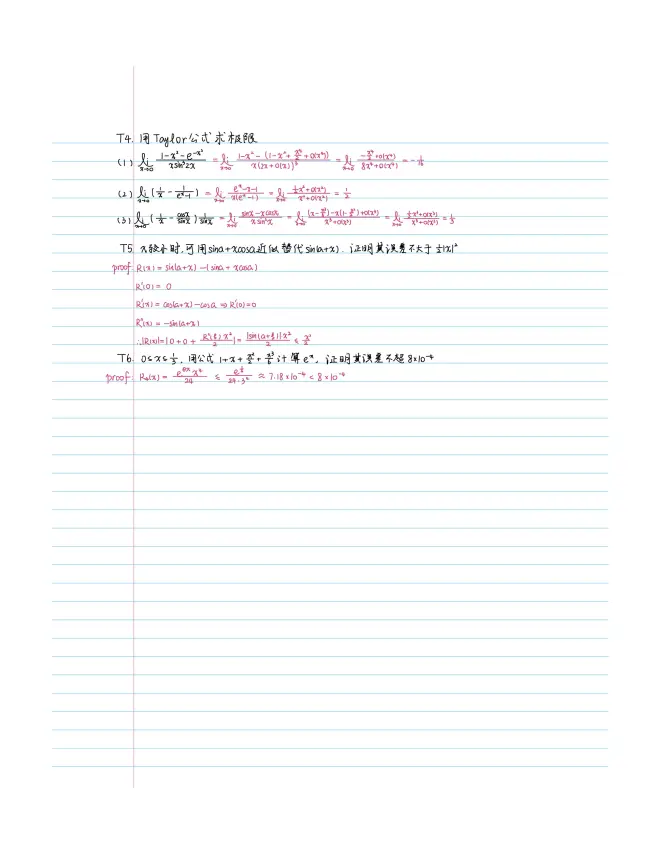 T4. 用Taylor公式求极限
(1) lim x→0 (1-x²-e^(-x²))/(x sin³2x) = lim x→0 (1-x²-(1-x²+x⁴/2+o(x⁴)))/(x(2x+o(x))³) = lim x→0 (-x⁴/2+o(x⁴))/(8x⁴+o(x⁴)) = -1/16
(2) lim x→0 (1/x - 1/(eˣ-1)) = lim x→0 (eˣ-x-1)/(x(eˣ-1)) = lim x→0 (½x²+o(x²))/(x²+o(x²)) = 1/2
(3) lim x→0 (1/x - cosx/sinx) 1/sinx = lim x→0 (sinx-xcosx)/(x sin²x) = lim x→0 ((x-x³/6)-x(1-x²/2)+o(x³))/(x³+o(x³)) = lim x→0 (⅓x³+o(x³))/(x³+o(x³)) = 1/3
T5. x较小时,可用sina+xcosa近似替代sin(a+x),证明其误差不大于½|x|²
proof: R(x) = sin(a+x) - (sina + xcosa)
R(0) = 0
R'(x) = cos(a+x) - cosa ⇒ R'(0)=0
R''(x) = -sin(a+x)
∴|R(x)| = |0+0+R''(ξ)x²/2| = |sin(a+ξ)|x²/2 ≤ x²/2
T6. 0≤x≤1/3,用公式 1+x+x²/2+x³/6 计算eˣ,证明其误差不超8×10⁻⁴
proof: R₄(x) = e^(θx)x⁴/24 ≤ e^(1/3)/(24·3⁴) ≈ 7.18×10⁻⁴ < 8×10⁻⁴